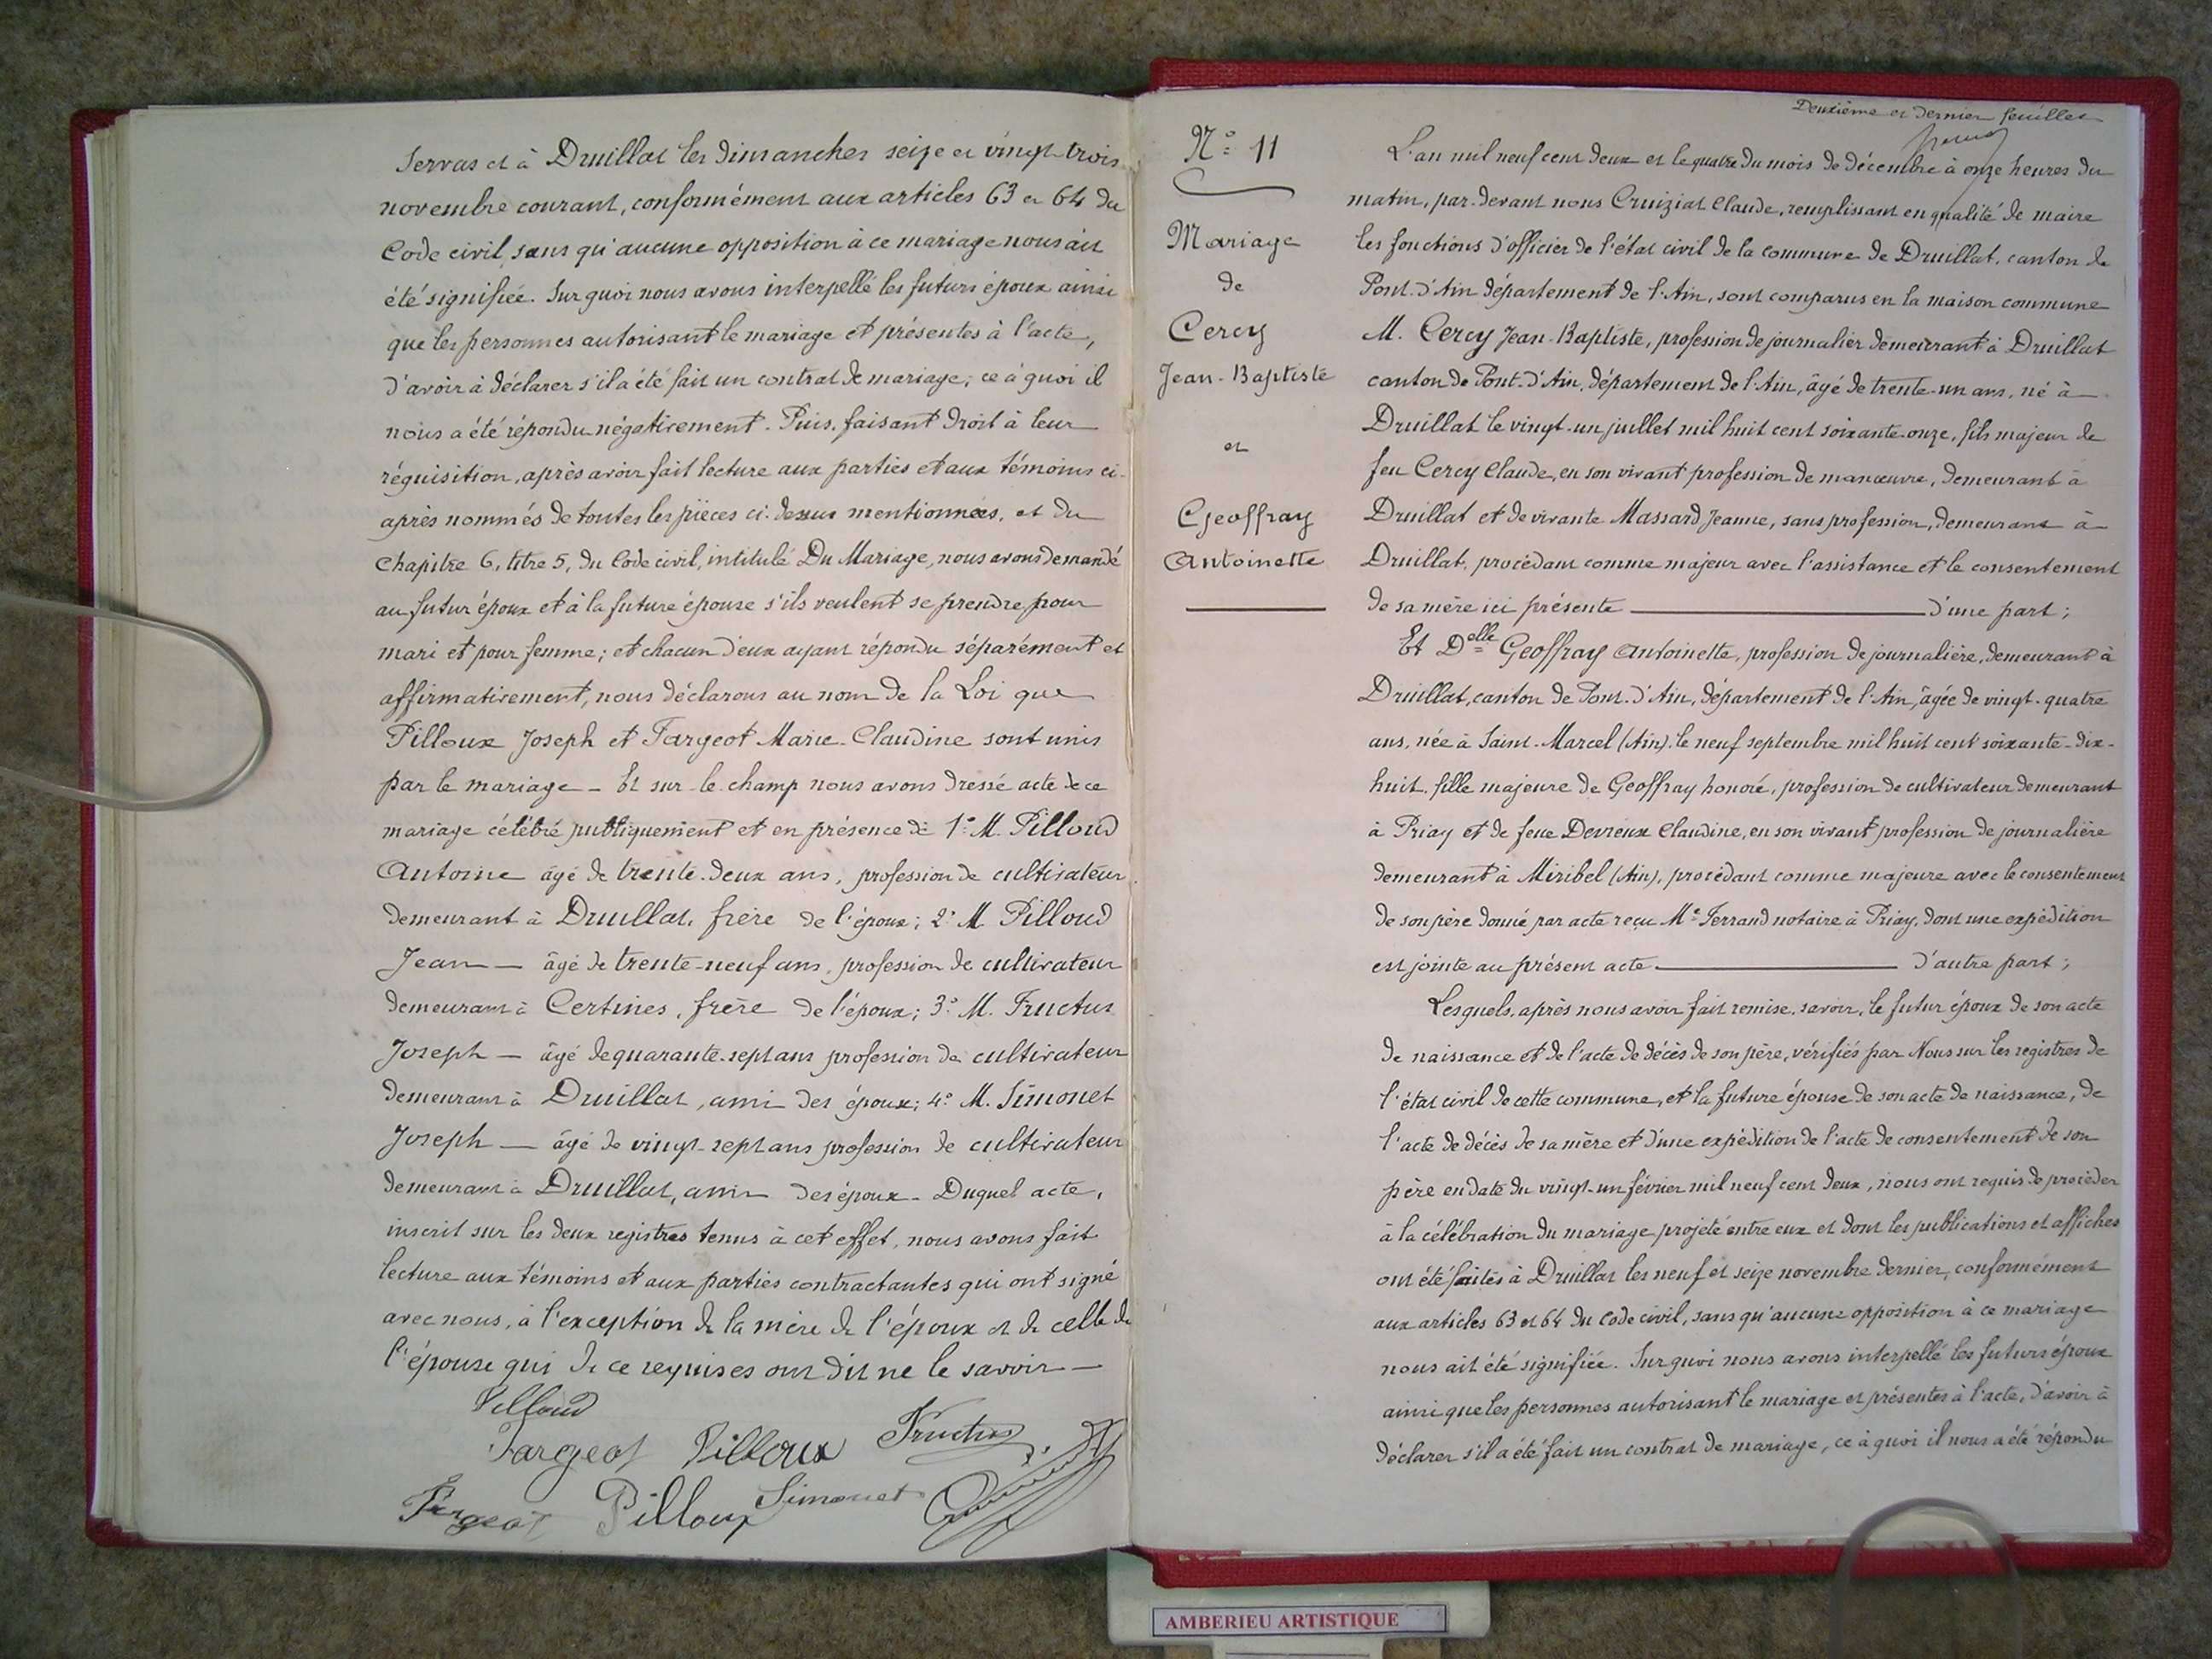 Servas et à Druillat les dimanches seize et vingt-trois
novembre courant, conformément aux articles 63 et 64 du
Code civil, sans qu'aucune opposition à ce mariage nous ait
été signifiée. Sur quoi nous avons interpellé les futurs époux ainsi
que les personnes autorisant le mariage et présentes à l'acte,
d'avoir à déclarer s'il a été fait un contrat de mariage; ce à quoi il
nous a été répondu négativement. Puis, faisant droit à leur
réquisition, après avoir fait lecture aux parties et aux témoins ci-
après nommés de toutes les pièces ci-dessus mentionnées, et du
chapitre 6, titre 5, du Code civil, intitulé Du Mariage, nous avons demandé
au futur époux et à la future épouse s'ils veulent se prendre pour
mari et pour femme; et chacun d'eux ayant répondu séparément et
affirmativement, nous déclarons au nom de la Loi que
Pilloux Joseph et Fargeot Marie-Claudine sont unis
par le mariage - Et sur-le-champ nous avons dressé acte de ce
mariage célébré publiquement et en présence de 1° M. Pilloud
Antoine âgé de trente-deux ans, profession de cultivateur
demeurant à Druillat, frère de l'époux; 2° M Pilloud
Jean — âgé de trente-neuf ans, profession de cultivateur
demeurant à Certines, frère de l'époux; 3° M. Fructus
Joseph — âgé de quarante-sept ans profession de cultivateur
demeurant à Druillat, ami des époux; 4° M. Simonet
Joseph — âgé de vingt-sept ans profession de cultivateur
demeurant à Druillat, ami des époux - Duquel acte,
inscrit sur les deux registres tenus à cet effet, nous avons fait
lecture aux témoins et aux parties contractantes qui ont signé
avec nous, à l'exception de la mère de l'époux et de celle de
l'épouse qui de ce requises ont dit ne le savoir —
Pilloud
Fargeot Pilloux Fructus
Fargeot Pilloux Simonet
Deuxième et dernier feuillet
N° 11
Mariage
de
Cercy
Jean-Baptiste
et
Geoffray
Antoinette
L'an mil neuf cent deux et le quatre du mois de décembre à onze heures du
matin, par-devant nous Cruiziat Claude, remplissant en qualité de maire
les fonctions d'officier de l'état civil de la commune de Druillat, canton de
Pont-d'Ain département de l'Ain, sont comparus en la maison commune
M. Cercy Jean-Baptiste, profession de journalier demeurant à Druillat
canton de Pont-d'Ain, département de l'Ain, âgé de trente-un ans, né à
Druillat le vingt-un juillet mil huit cent soixante-onze, fils majeur de
feu Cercy Claude, en son vivant profession de manœuvre, demeurant à
Druillat et de vivante Massard Jeanne, sans profession, demeurant à
Druillat, procédant comme majeur avec l'assistance et le consentement
de sa mère ici présente — d'une part;
Et Delle Geoffray Antoinette, profession de journalière, demeurant à
Druillat, canton de Pont-d'Ain, département de l'Ain, âgée de vingt-quatre
ans, née à Saint-Marcel (Ain), le neuf septembre mil huit cent soixante-dix-
huit, fille majeure de Geoffray honoré, profession de cultivateur demeurant
à Priay et de feue Devieux Claudine, en son vivant profession de journalière
demeurant à Miribel (Ain), procédant comme majeure avec le consentement
de son père donné par acte reçu Me Ferrand notaire à Priay, dont une expédition
est jointe au présent acte — d'autre part;
Lesquels, après nous avoir fait remise, savoir, le futur époux de son acte
de naissance et de l'acte de décès de son père, vérifiés par Nous sur les registres de
l'état civil de cette commune, et la future épouse de son acte de naissance, de
l'acte de décès de sa mère et d'une expédition de l'acte de consentement de son
père en date du vingt-un février mil neuf cent deux, nous ont requis de procéder
à la célébration du mariage projeté entre eux et dont les publications et affiches
ont été faites à Druillat les neuf et seize novembre dernier, conformément
aux articles 63 et 64 du Code civil, sans qu'aucune opposition à ce mariage
nous ait été signifiée. Sur quoi nous avons interpellé les futurs époux
ainsi que les personnes autorisant le mariage et présentes à l'acte, d'avoir à
déclarer s'il a été fait un contrat de mariage, ce à quoi il nous a été répondu
AMBERIEU ARTISTIQUE